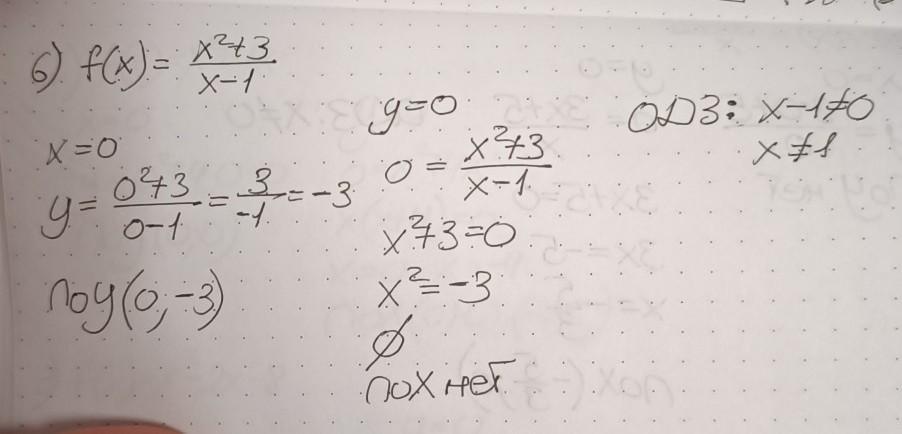 б) f(x) = (x²+3)/(x-1)
x=0
y = (0²+3)/(0-1) = 3/-1 = -3
по y (0; -3)
y=0
0 = (x²+3)/(x-1)
x²+3=0
x²=-3
∅
по x нет
ОДЗ: x-1≠0
x≠1